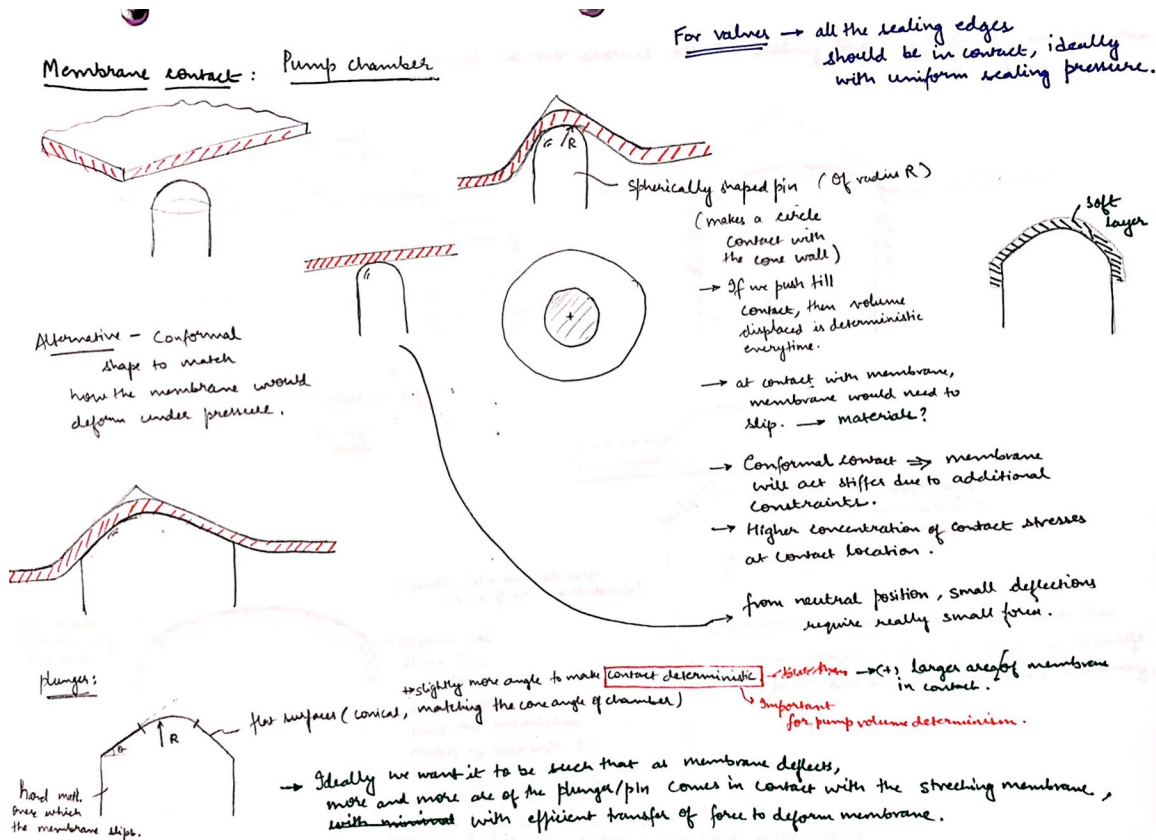 For valves → all the sealing edges
should be in contact, ideally
with uniform sealing pressure.
Membrane contact : Pump chamber
R
Spherically shaped pin (Of radius R)
(makes a circle
contact with
the cone wall)
soft
layer
→ If we push till
contact, then volume
displaced is deterministic
everytime.
Alternative – Conformal
shape to match
how the membrane would
deform under pressure.
→ at contact with membrane,
membrane would need to
slip. → materials?
→ Conformal contact ⇒ membrane
will act stiffer due to additional
constraints.
→ Higher concentration of contact stresses
at contact location.
from neutral position, small deflections
require really small force.
plunger:
↔ slightly more angle to make contact deterministic → → (+) larger area of membrane
in contact.
flat surfaces (conical, matching the cone angle of chamber)
→ Important
for pump volume determinism.
R
θ
hard matl.
over which
the membrane slips.
→ Ideally we want it to be such that as membrane deflects,
more and more are of the plunger/pin comes in contact with the streching membrane,
with minimal with efficient transfer of force to deform membrane.